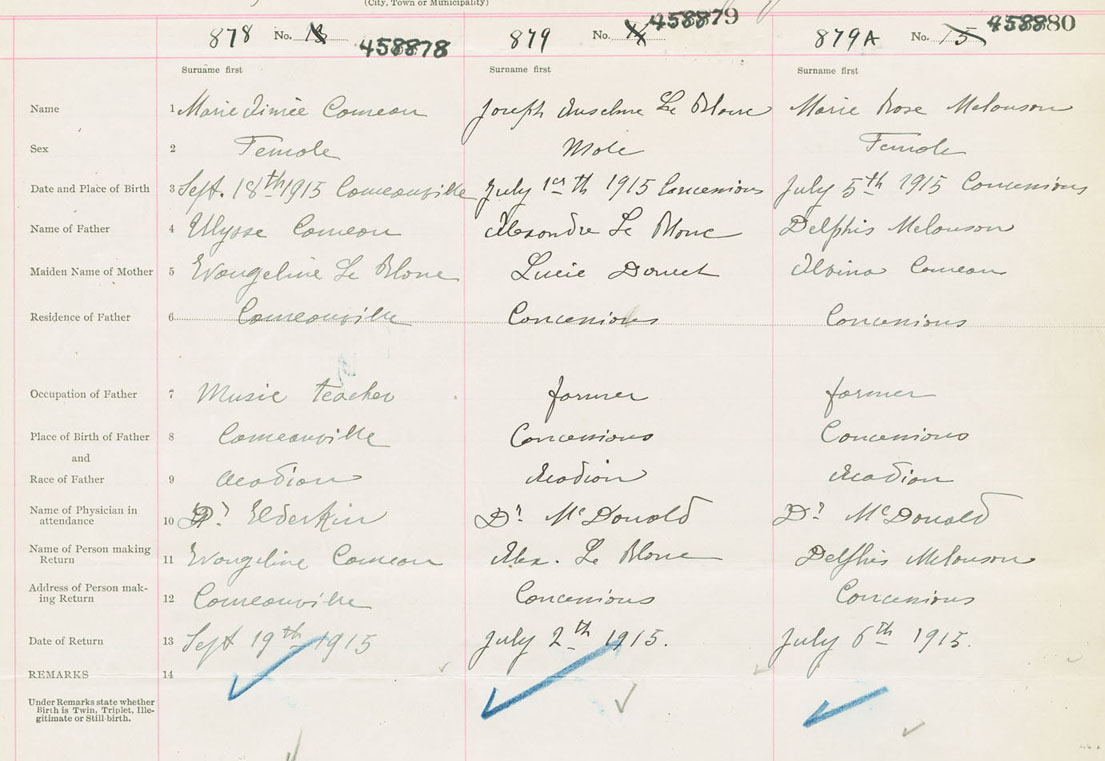 (City, Town or Municipality)
878 No. 13 458878 879 No. 14 458879 879A No. 15 458880
Surname first Surname first Surname first
Name 1 Marie Aimée Comeau Joseph Anselme Le Blanc Marie Rose Melanson
Sex 2 Female Male Female
Date and Place of Birth 3 Sept. 18th 1915 Comeauville July 1 1915 Concessions July 5th 1915 Concessions
Name of Father 4 Ulysse Comeau Alexandre Le Blanc Delphis Melanson
Maiden Name of Mother 5 Evangeline Le Blanc Lucie Doucet Albina Comeau
Residence of Father 6 Comeauville Concessions Concessions
Occupation of Father 7 Music teacher farmer farmer
Place of Birth of Father 8 Comeauville Concessions Concessions
and
Race of Father 9 Acadian Acadian Acadian
Name of Physician in attendance 10 Dr Elderkin Dr McDonald Dr McDonald
Name of Person making Return 11 Evangeline Comeau Alex. Le Blanc Delphis Melanson
Address of Person making Return 12 Comeauville Concessions Concessions
Date of Return 13 Sept 19th 1915 July 2th 1915. July 6th 1915.
REMARKS 14
Under Remarks state whether
Birth is Twin, Triplet, Ille-
gitimate or Still-birth.